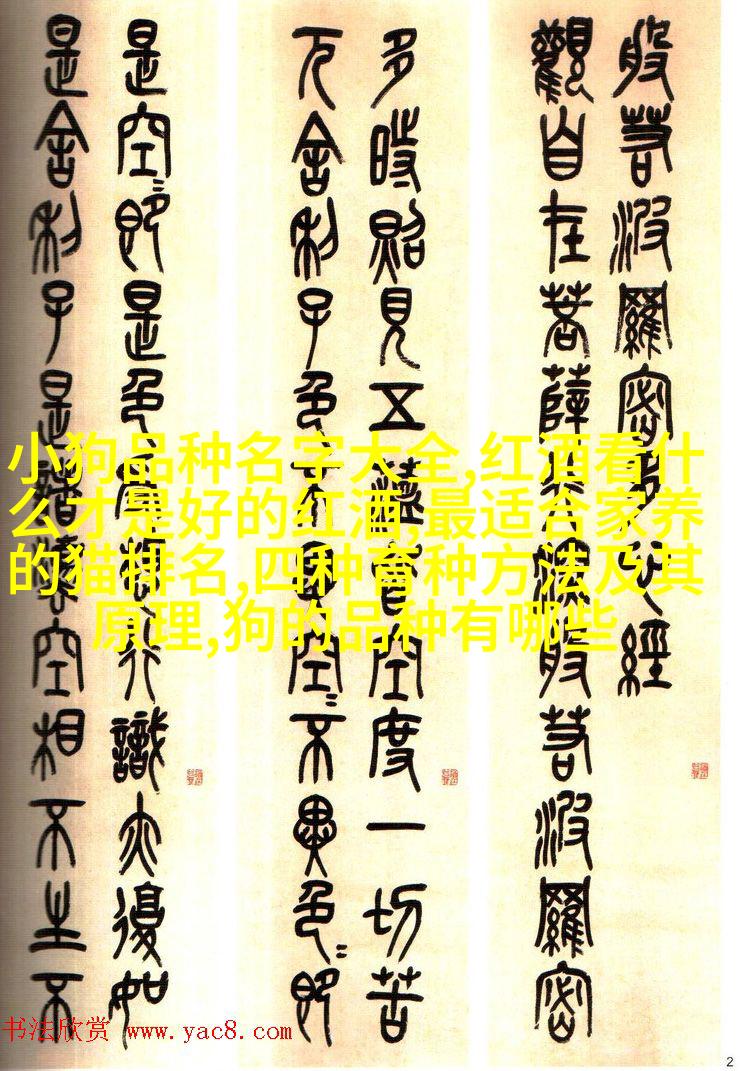 般若波羅密多心經
觀自在菩薩行深般若波羅密
多時照見五蘊皆空度一切苦
厄舍利子色不異空〻不異色〻即
是空〻即是色受想行識亦復如
是舍利子是諸法空相不生不
小狗品种名字大全,红酒看什
么才是好的红酒,最适合家养
的猫排名,四种育种方法及其
原理,狗的品种有哪些
书法欣赏 www.yac8.com
2